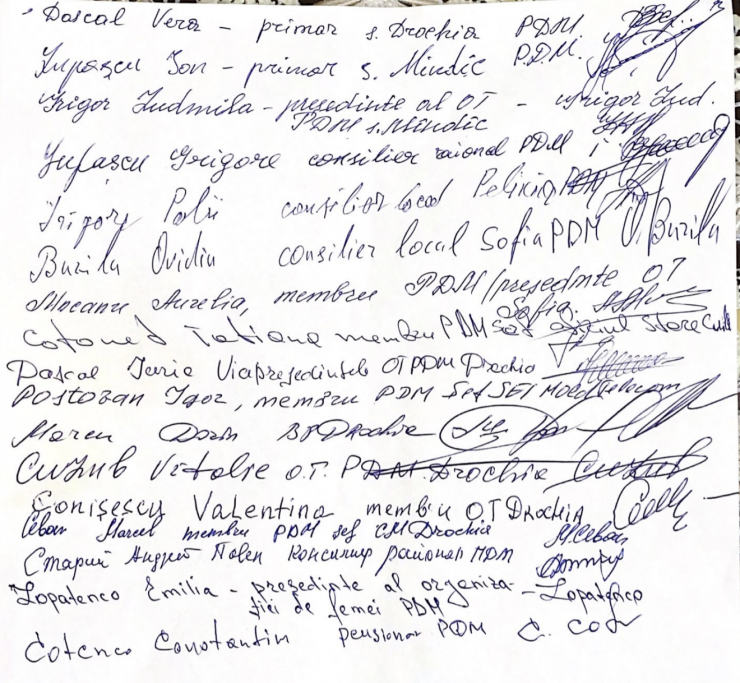 Dascal Vera – primar s. Drochia PDM
Lupașcu Ion – primar s. Mindîc P.D.M.
Grigor Ludmila – președinte al OT – Grigor Lud.
PDM s. Mîndîc
Lupașcu Grigore consilier raional PDM
Grigory Palii consilier local Pelinia PDM
Buzila Ovidiu consilier local Sofia PDM O. Buzila
Mocanu Aurelia, membru PDM/președinte OT
Sofia.
Cotoneț Tatiana membru PDM Șef oficiul Stare Civilă
Dascal Iurie Viceprședintele OT PDM Drochia
Postovan Igor, membru PDM Șef SET Moldtelecom
Marcu Dorin Drochia
Сизиив Vitalie O.T. PDM Drochia
Conișescu Valentina membru OT Drochia
Ceban Marcel membru PDM șef CM Drochia M. Ceban
Старий Андрей Павел Консилир районал ПDM
Lopatenco Emilia – președinte al organiza- – Lopatenco
ției de femei PDM
Cotenco Constantin pensionar PDM C. Cot